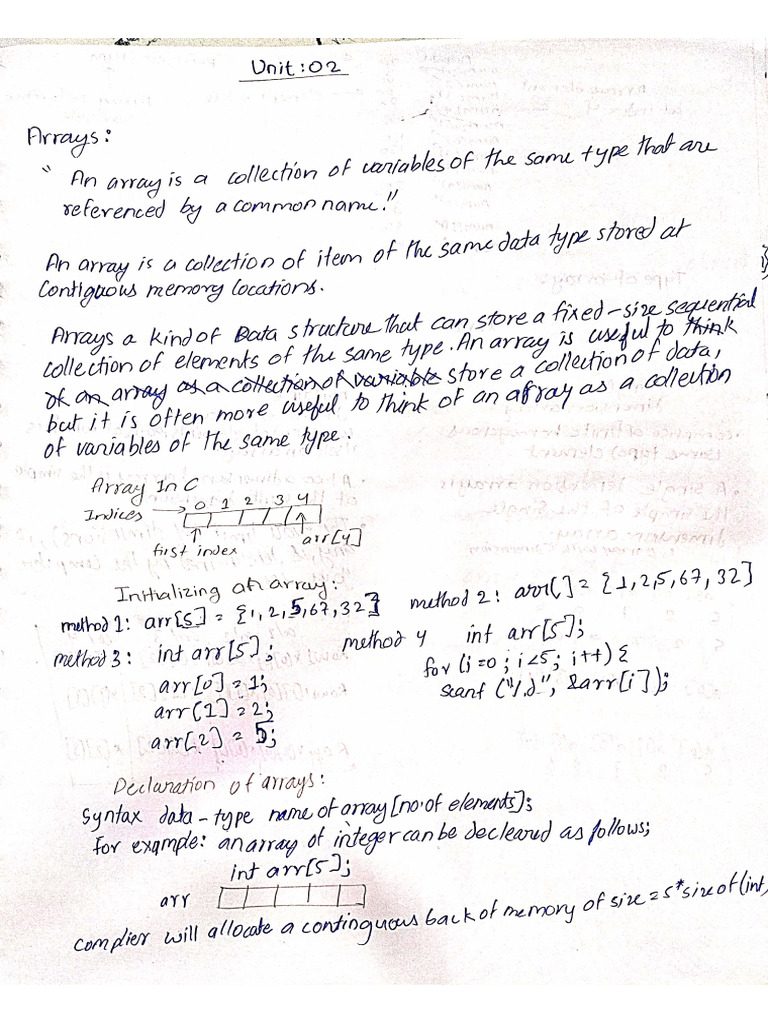 Unit:02
Arrays:
" An array is a collection of variables of the same type that are
referenced by a common name!"
An array is a collection of item of the same data type stored at
Contiguous memory locations.
Arrays a kind of Data structure that can store a fixed-size sequential
collection of elements of the same type. An array is useful to think
of an array as a collection of variable store a collection of data,
but it is often more useful to think of an array as a collection
of variables of the same type.
Array In C
Indices → 0 1 2 3 4
first index arr[4]
Initializing an array:
method 1: arr[5] = {1,2,5,67,32} method 2: arr[] = {1,2,5,67,32}
method 3: int arr[5]; method 4 int arr[5];
arr[0] = 1; for (i=0; i<5; i++) {
arr[1] = 2; scanf ("%d", &arr[i]);
arr[2] = 5;
Declaration of arrays:
Syntax data-type name of array [no.of elements];
for example: an array of integer can be decleared as follows;
int arr[5];
arr
complier will allocate a continguous back of memory of size = 5*sizeof(int,